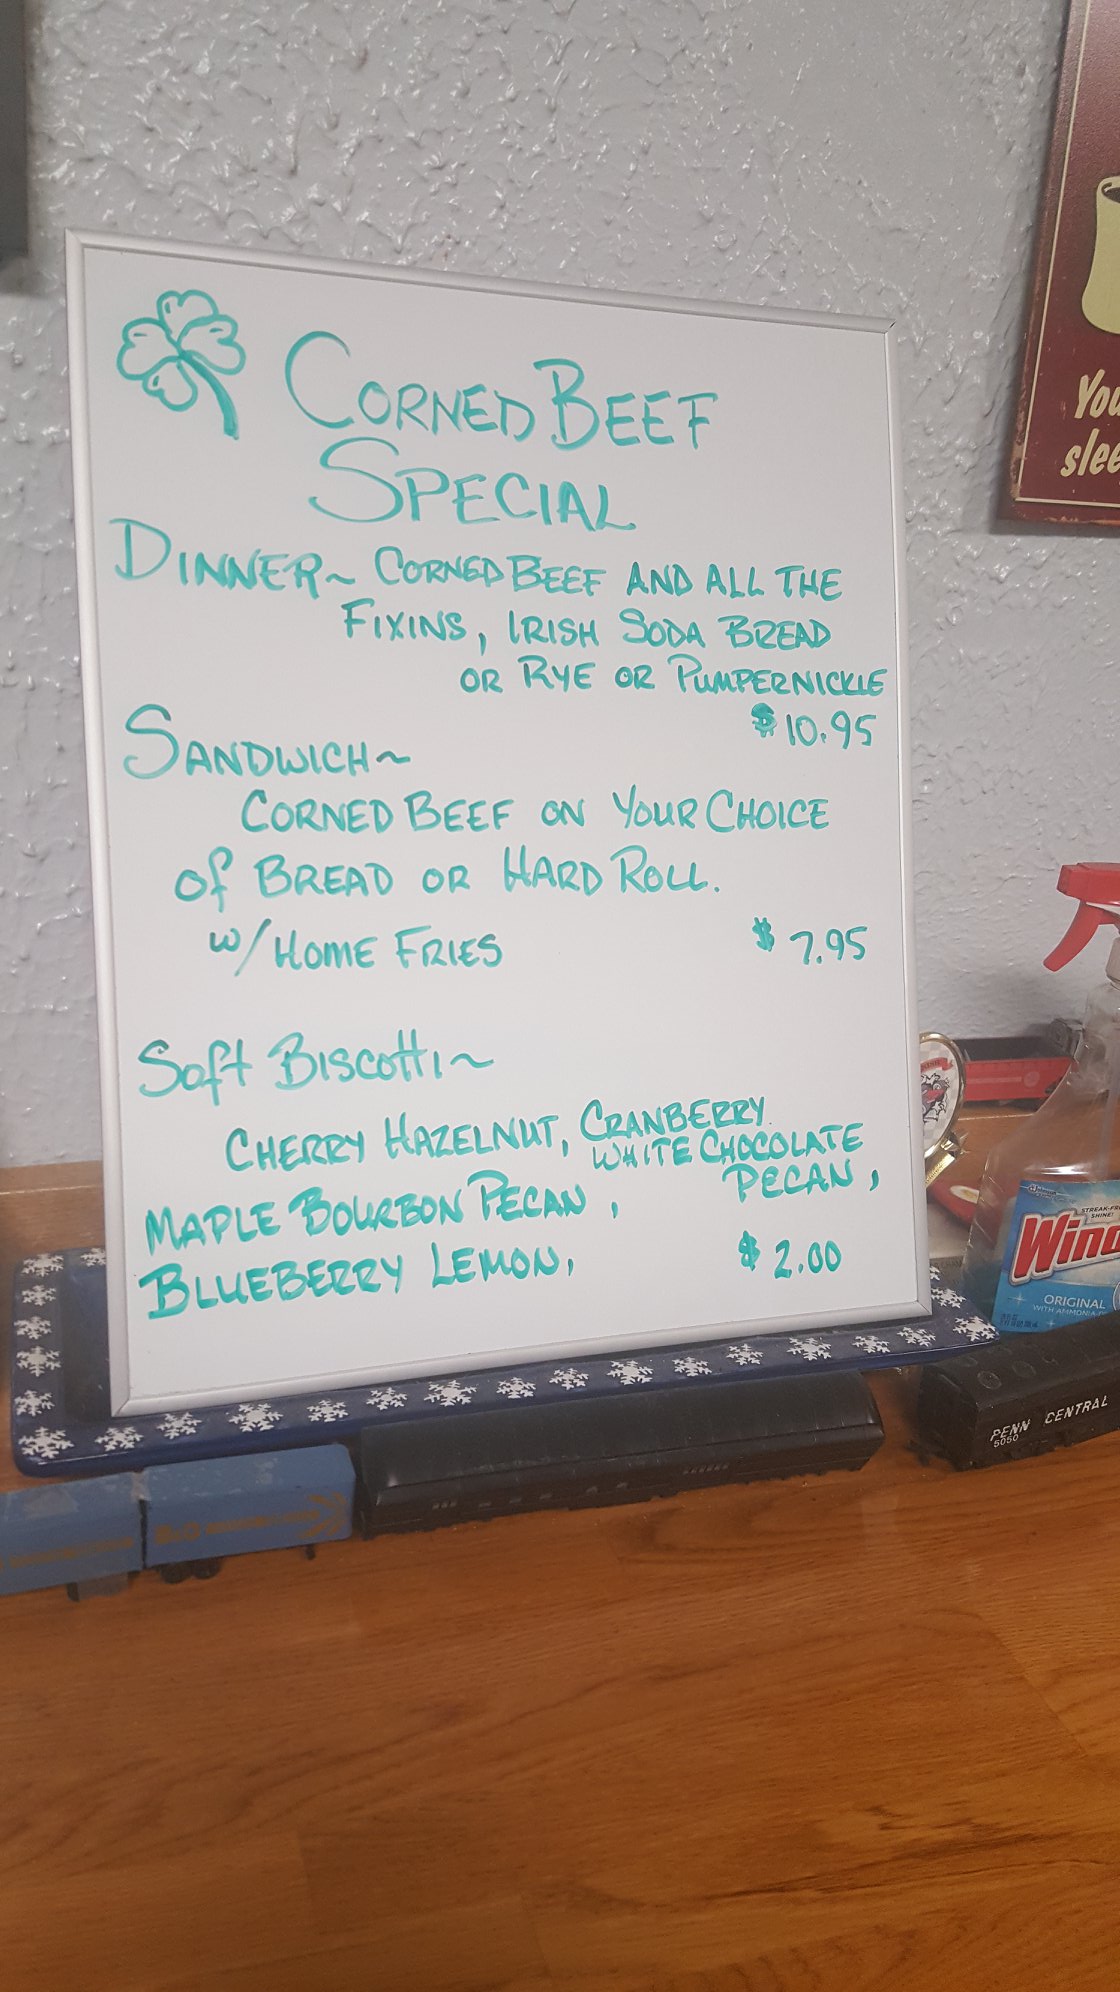 CORNED BEEF
SPECIAL
DINNER~ CORNED BEEF AND ALL THE
FIXINS, IRISH SODA BREAD
OR RYE OR PUMPERNICKLE
$10.95
SANDWICH~
CORNED BEEF ON YOUR CHOICE
of BREAD OR HARD ROLL.
w/HOME FRIES $7.95
Soft Biscotti~
CHERRY HAZELNUT, CRANBERRY
WHITE CHOCOLATE
PECAN,
MAPLE BOURBON PECAN,
BLUEBERRY LEMON, $2.00
You
slee
STREAK-FR
SHINE!
Wind
ORIGINAL
WITH AMMONIA-D
PENN CENTRAL
5050